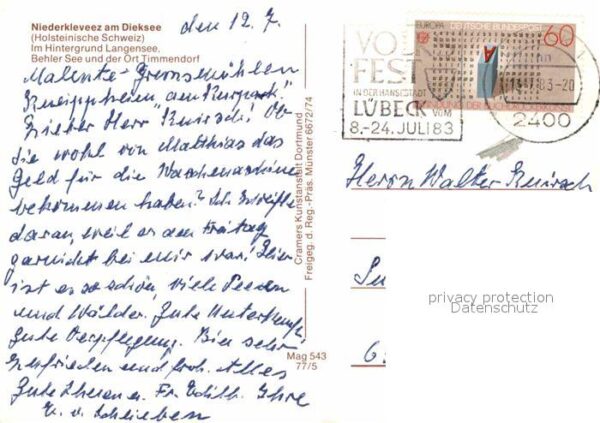 Niederkleveez am Dieksee
(Holsteinische Schweiz)
Im Hintergrund Langensee,
Behler See und der Ort Timmendorf
den 12. 7.
Malente-Gremsmühlen
Kneippheim „am Kurpark"
Lieber Herr Knirsch! Ob
Sie wohl von Matthias das
Geld für die Waschmaschine
bekommen haben? Ich zweifle
daran, weil er am Freitag
garnicht bei mir war! Hier
ist es so schön, viele Seen
und Wälder. Gute Unterkunft,
gute Verpflegung. Bin sehr
zufrieden und froh. Alles
Gute Ihnen u. Fr. Edith. Ihre
E. v. Schlieben
Cramers Kunstanstalt Dortmund
Freigeg. d. Reg.-Präs. Münster 6672/74
Mag 543
77/5
VOLKS
FEST
IN DER HANSESTADT
LÜBECK VOM
8.-24. JULI 83
EUROPA
DEUTSCHE BUNDESPOST
60
A
83-20
2400
Herrn Walter Knirsch
privacy protection
Datenschutz